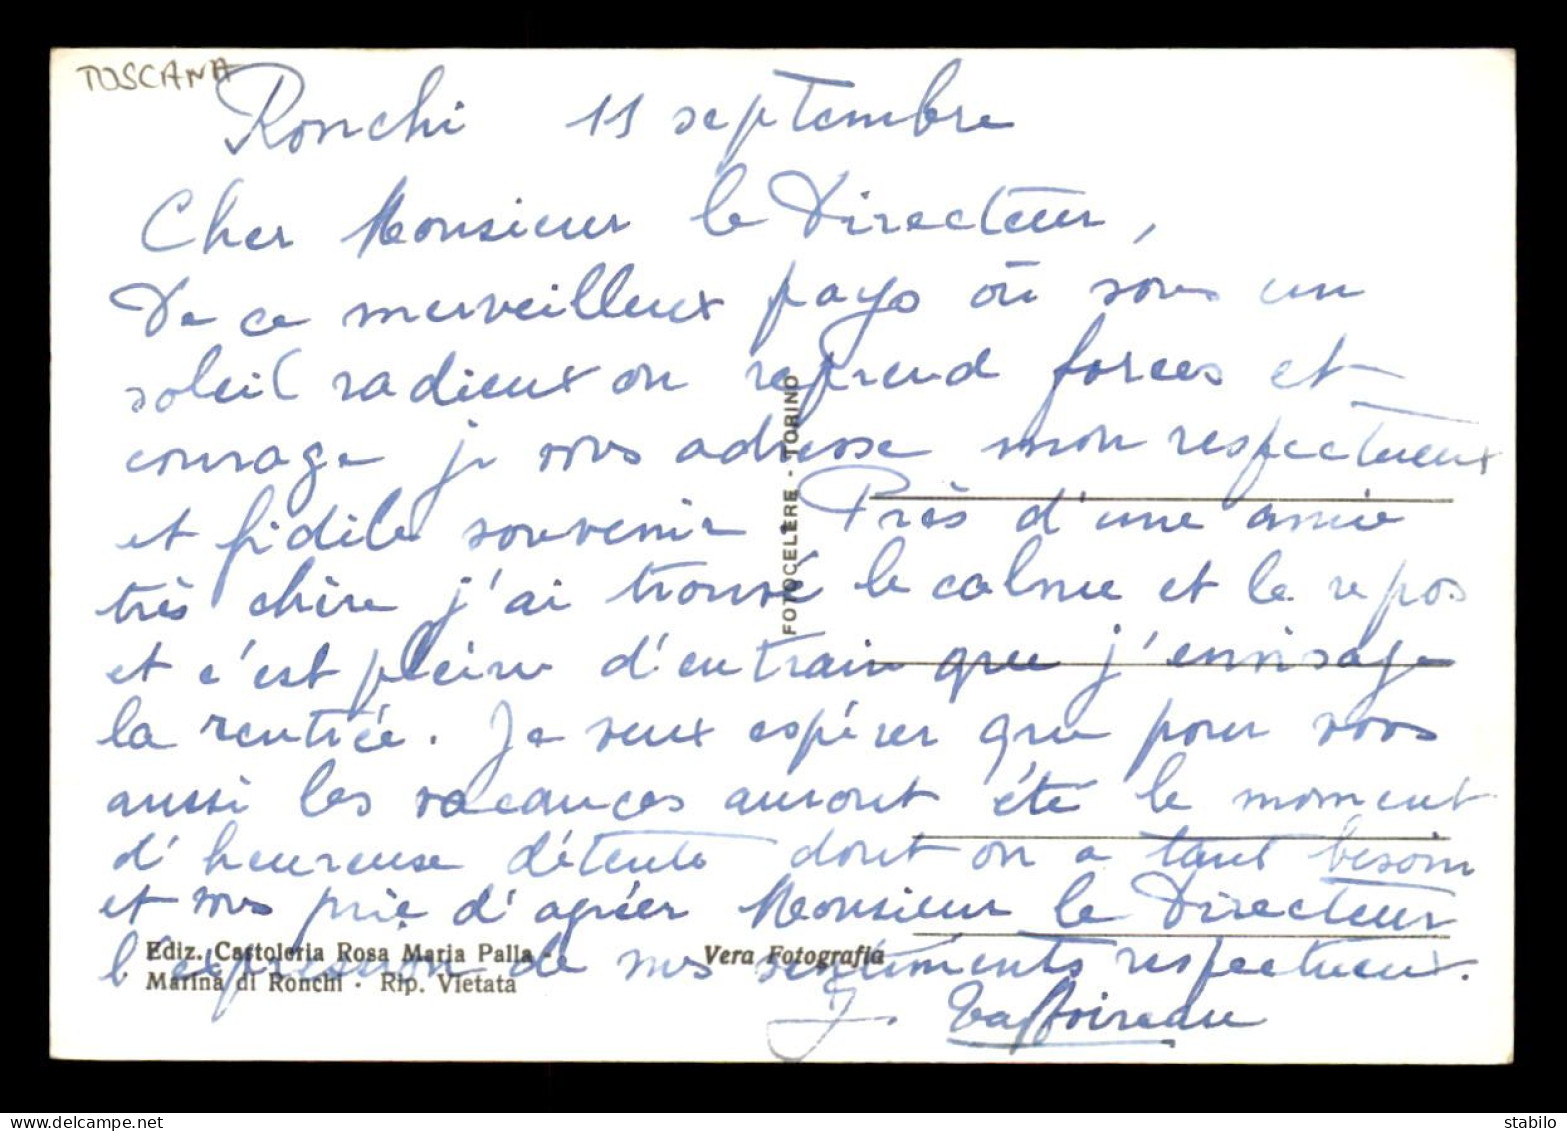 TOSCANA
Ronchi 11 septembre
Cher Monsieur le Directeur,
De ce merveilleux pays où sous un
soleil radieux on reprend forces et
courage je vous adresse mon respectueux
et fidèle souvenir Près d'une amie
très chère j'ai trouvé le calme et le repos
et c'est pleine d'entrain que j'envisage
la rentrée. Je veux espérer que pour vous
aussi les vacances auront été le moment
d'heureuse détente dont on a tant besoin
et vous prie d'agréer Monsieur le Directeur
l'expression de mes sentiments respectueux.
J.
Ediz. Cartoleria Rosa Maria Palla -
Marina di Ronchi - Rip. Vietata
Vera Fotografia
FOTOCELERE - TORINO
www.delcampe.net
stabilo92